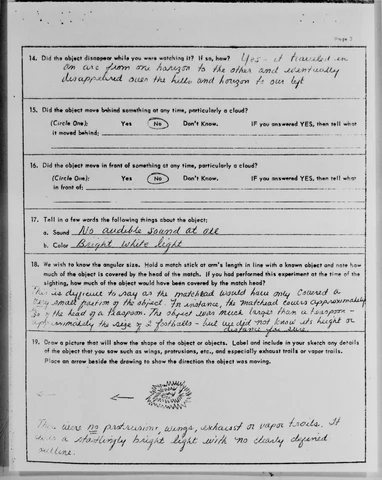 Page 3
14. Did the object disappear while you were watching it? If so, how? Yes - it traveled in
an arc from one horizon to the other and eventually
disappeared over the hills and horizon to our left
15. Did the object move behind something at any time, particularly a cloud?
(Circle One): Yes No Don't Know. IF you answered YES, then tell what
it moved behind:
16. Did the object move in front of something at any time, particularly a cloud?
(Circle One): Yes No Don't Know. IF you answered YES, then tell what
in front of:
17. Tell in a few words the following things about the object:
a. Sound No audible sound at all
b. Color Bright white light
18. We wish to know the angular size. Hold a match stick at arm's length in line with a known object and note how
much of the object is covered by the head of the match. If you had performed this experiment at the time of the
sighting, how much of the object would have been covered by the match head?
This is difficult to say as the matchead would have only covered a
very small portion of the object. For instance, the matchead covers approximately
of the head of a teaspoon. The object was much larger than a teaspoon -
approximately the size of 2 footballs - but we did not know its height or
distance for sure.
19. Draw a picture that will show the shape of the object or objects. Label and include in your sketch any details
of the object that you saw such as wings, protrusions, etc., and especially exhaust trails or vapor trails.
Place an arrow beside the drawing to show the direction the object was moving.
There were no protrusions, wings, exhaust or vapor trails. It
was a startlingly bright light with no clearly defined
outline.